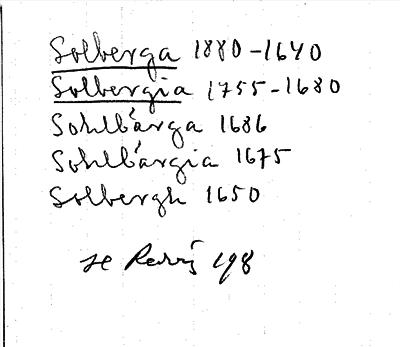 Solberga 1880-1640
Solbergia 1755-1680
Sohlbärga 1686
Sohlbärgia 1675
Solbergh 1650
se 198